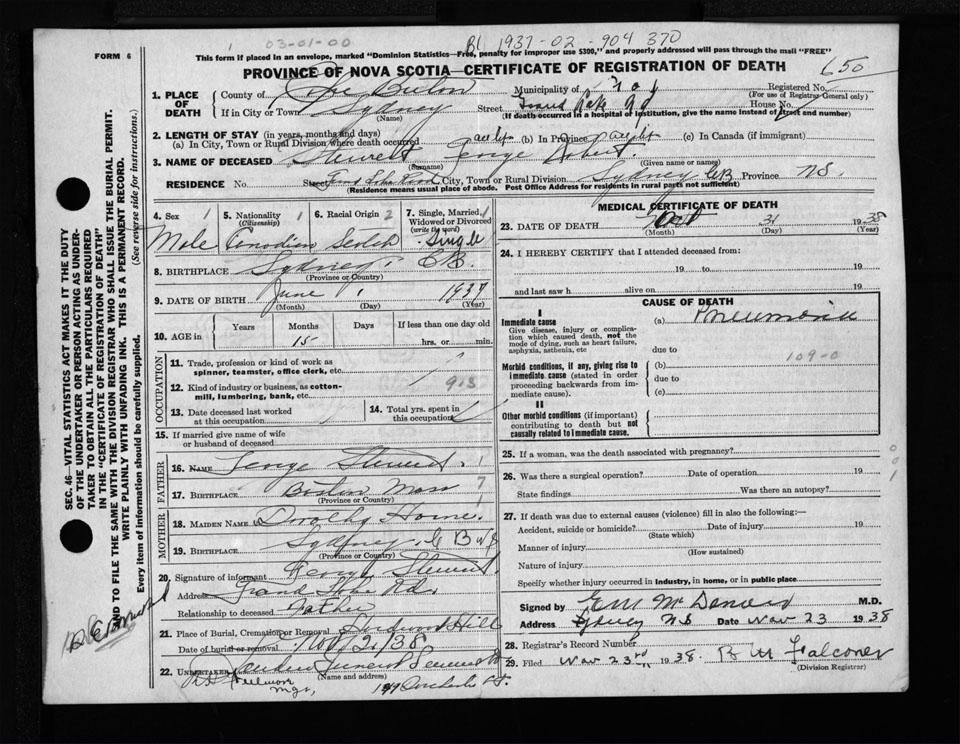 03-01-00 BL 1937-02-904370
FORM 6 This form if placed in an envelope, marked "Dominion Statistics—Free, penalty for improper use $300," and properly addressed will pass through the mail "FREE"
PROVINCE OF NOVA SCOTIA—CERTIFICATE OF REGISTRATION OF DEATH 650
1. PLACE OF DEATH
County of Cape Breton Municipality of Registered No.
(For use of Registrar-General only)
If in City or Town Sydney Street Grand Lake Rd House No.
(Name) (If death occurred in a hospital or institution, give the name instead of street and number)
2. LENGTH OF STAY (in years, months and days)
(a) In City, Town or Rural Division where death occurred all life (b) In Province all life (c) In Canada (if immigrant)
3. NAME OF DECEASED Stewart George Robert.
(Surname) (Given name or names)
RESIDENCE No. Street Grand Lake Road City, Town or Rural Division Sydney CB Province N.S.
(Residence means usual place of abode. Post Office Address for residents in rural parts not sufficient)
4. Sex 1 5. Nationality 1 (Citizenship) 6. Racial Origin 2 7. Single, Married, Widowed or Divorced (write the word) 1
Male Canadian Scotch Single
8. BIRTHPLACE Sydney, C.B.
(Province or Country)
9. DATE OF BIRTH June 1 1937
(Month) (Day) (Year)
10. AGE in Years Months Days If less than one day old
15 hrs. or min.
OCCUPATION
11. Trade, profession or kind of work as spinner, teamster, office clerk, etc.
12. Kind of industry or business, as cotton-mill, lumbering, bank, etc. 913
13. Date deceased last worked at this occupation 14. Total yrs. spent in this occupation
15. If married give name of wife or husband of deceased
FATHER
16. NAME George Stewart. 1
17. BIRTHPLACE Boston Mass 7
(Province or Country) 1
MOTHER
18. MAIDEN NAME Dorothy Horne.
19. BIRTHPLACE Sydney. C B
(Province or Country)
20. Signature of informant George Stewart.
Address Grand Lake Rd.
Relationship to deceased Father
21. Place of Burial, Cremation or Removal Hill
Date of burial or removal Nov 2/38
22. UNDERTAKER Funeral
(Name and address)
Mgr,
MEDICAL CERTIFICATE OF DEATH
23. DATE OF DEATH Oct 31 1938
(Month) (Day) (Year)
24. I HEREBY CERTIFY that I attended deceased from:
19 to 19
and last saw h alive on 19
CAUSE OF DEATH
I
Immediate cause (a) Pneumonia
Give disease, injury or complication which caused death, not the mode of dying, such as heart failure, asphyxia, asthenia, etc
due to
109-0
Morbid conditions, if any, giving rise to immediate cause (stated in order proceeding backwards from immediate cause). (b)
due to
(c)
II
Other morbid conditions (if important) contributing to death but not causally related to immediate cause.
25. If a woman, was the death associated with pregnancy?
26. Was there a surgical operation? Date of operation 19
State findings Was there an autopsy?
001
27. If death was due to external causes (violence) fill in also the following:—
Accident, suicide or homicide? Date of injury 19
(State which)
Manner of injury
(How sustained)
Nature of injury
Specify whether injury occurred in industry, in home, or in public place
Signed by M.D.
Address Sydney NS Date Nov 23 1938
28. Registrar's Record Number
29. Filed Nov 23rd 1938. B M Falconer
(Division Registrar)
SEC. 46—VITAL STATISTICS ACT MAKES IT THE DUTY
OF THE UNDERTAKER OR PERSON ACTING AS UNDER-
TAKER TO OBTAIN ALL THE PARTICULARS REQUIRED
IN THE "CERTIFICATE OF REGISTRATION OF DEATH"
AND TO FILE THE SAME WITH THE DIVISION REGISTRAR WHO SHALL ISSUE THE BURIAL PERMIT.
WRITE PLAINLY WITH UNFADING INK. THIS IS A PERMANENT RECORD.
Every item of information should be carefully supplied. (See reverse side for instructions.)